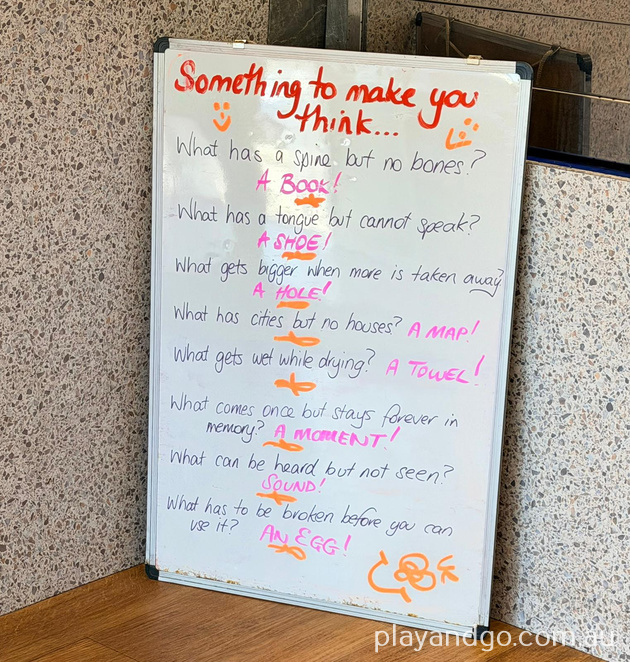 Something to make you
think...
What has a spine but no bones?
A BOOK!
What has a tongue but cannot speak?
A SHOE!
What gets bigger when more is taken away?
A HOLE!
What has cities but no houses? A MAP!
What gets wet while drying? A TOWEL!
What comes once but stays forever in
memory? A MOMENT!
What can be heard but not seen?
SOUND!
What has to be broken before you can
use it? AN EGG!
playandgo.com.au